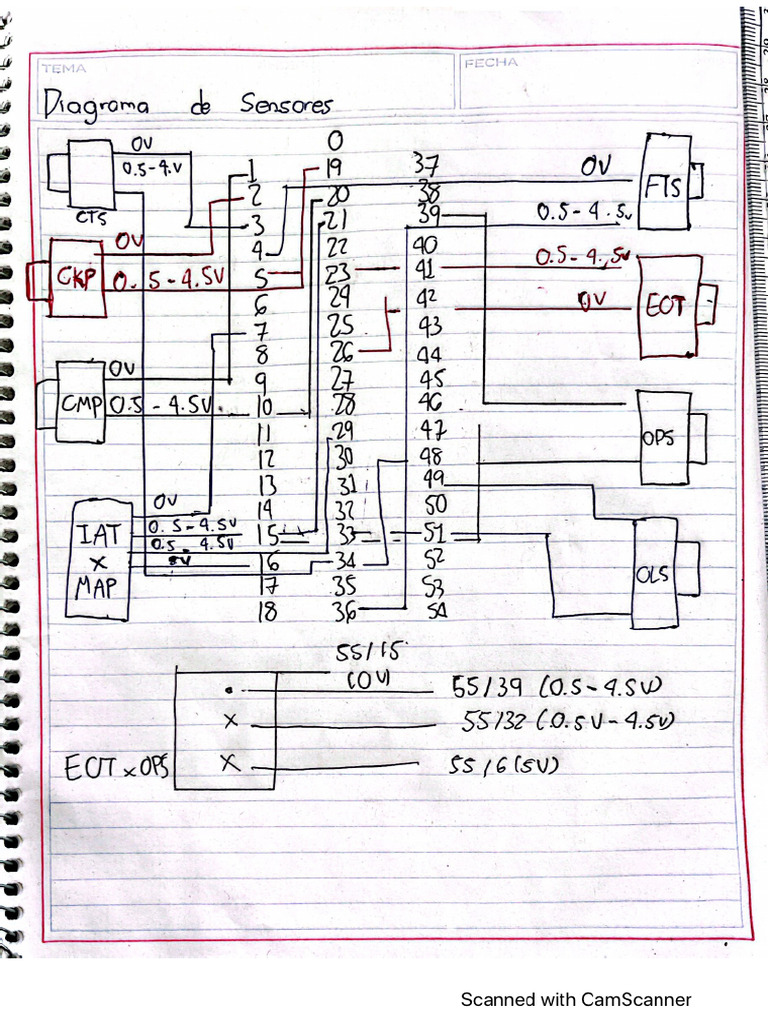 TEMA
FECHA
Diagrama de Sensores
CTS
0V
0.5-4.V
CKP
0V
0.5-4.5V
CMP
0V
0.5-4.5V
IAT
x
MAP
0V
0.5-4.5V
0.5-4.5V
5V
1
2
3
4
5
6
7
8
9
10
11
12
13
14
15
16
17
18
0
19
20
21
22
23
24
25
26
27
28
29
30
31
32
33
34
35
36
37
38
39
40
41
42
43
44
45
46
47
48
49
50
51
52
53
54
0V
FTS
0.5-4.5V
0.5-4.,5V
0V
EOT
OPS
OLS
55/15
(0V)
EOT x OPS
55/39 (0.5-4.5V)
x
55/32 (0.5V-4.5V)
x
55/6 (5V)
Scanned with CamScanner